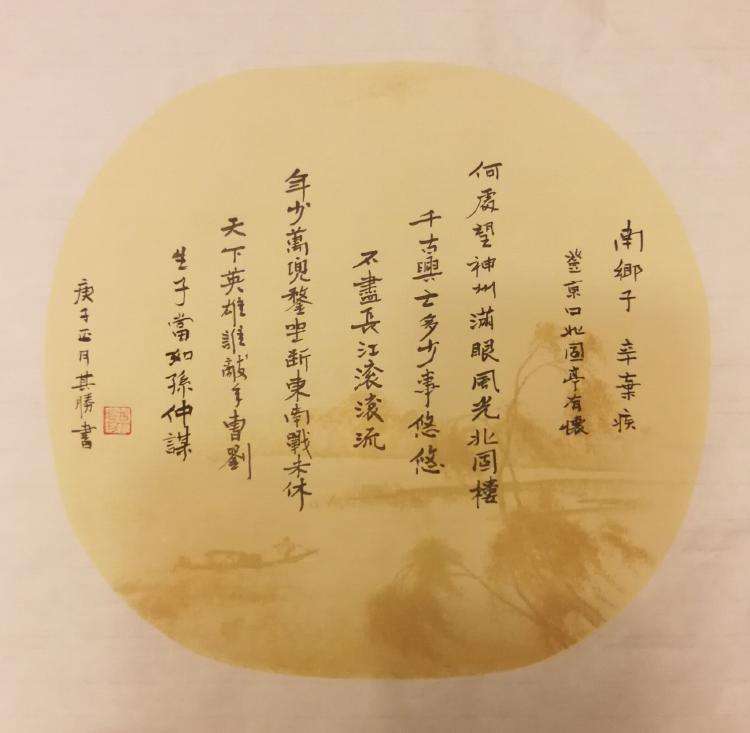 南鄉子 辛棄疾
登京口北固亭有懷
何處望神州滿眼風光北固樓
千古興亡多少事悠悠
不盡長江滾滾流
年少萬兜鍪坐斷東南戰未休
天下英雄誰敵手曹劉
生子當如孫仲謀
庚子正月其勝書